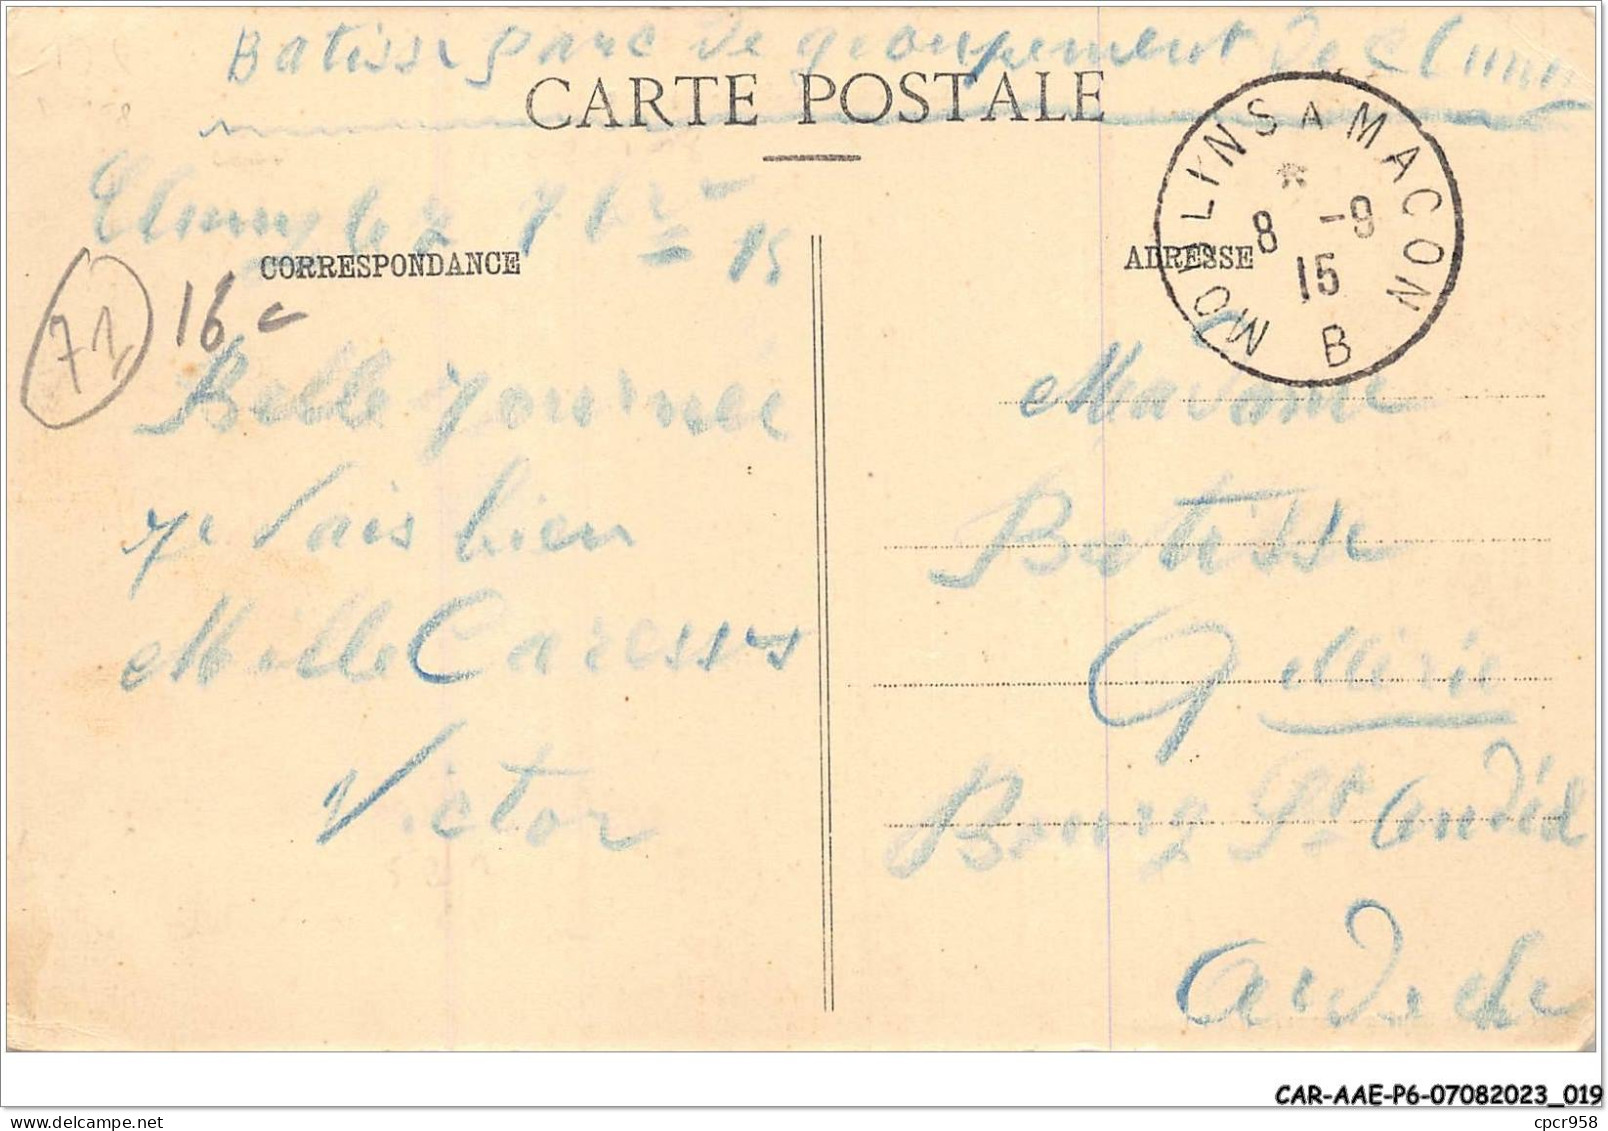 Batisse parc de groupement de Cluny
CARTE POSTALE
Cluny le 7 7bre 15
CORRESPONDANCE
71
16 c
Belle journée
je vais bien
Mille Caresses
Victor
MOULINS A MACON
8 -9
15
B
ADRESSE
Madame
Batisse
Mairie
Bourg St Andéol
Ardeche
CAR-AAE-P6-07082023_019
cpcr958